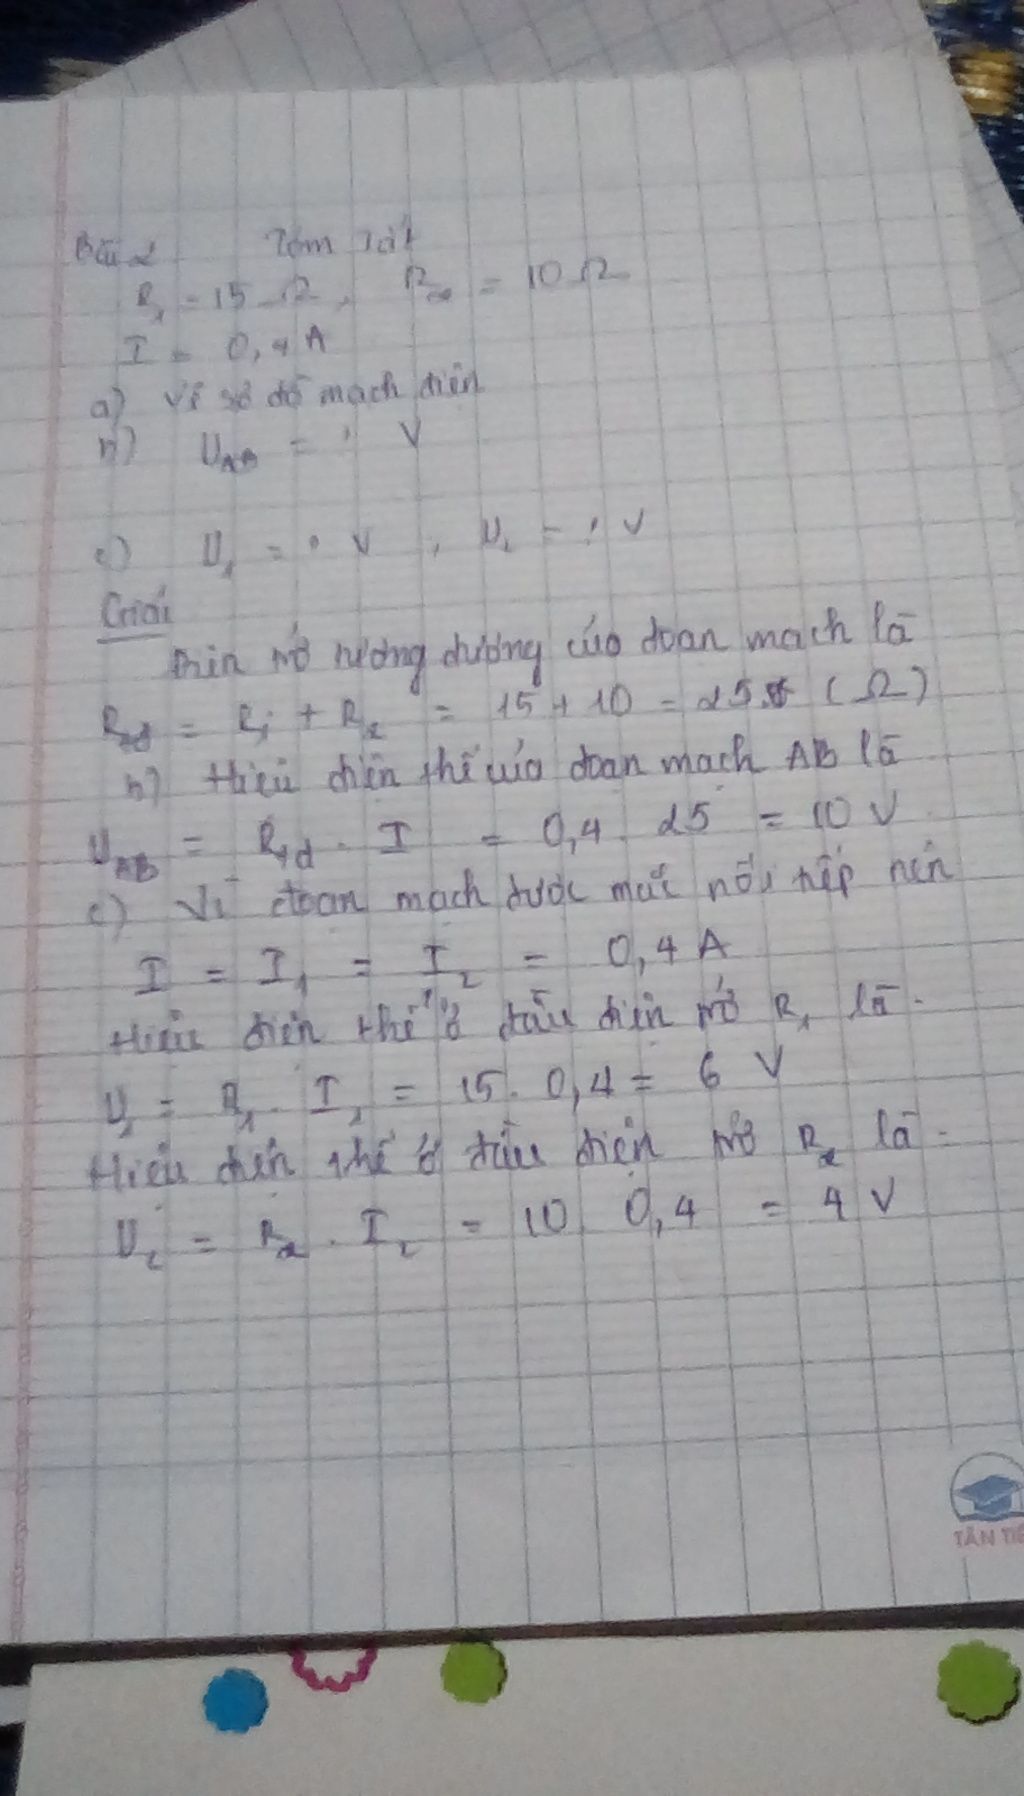 Bài 2 Tóm tắt
R₁ = 15 Ω, R₂ = 10 Ω
I = 0,4 A
a) vẽ sơ đồ mạch điện
b) U_AB = ? V
c) U₁ = ? V, U₂ = ? V
Giải
Điện trở tương đương của đoạn mạch là
R_tđ = R₁ + R₂ = 15 + 10 = 25 (Ω)
b) Hiệu điện thế của đoạn mạch AB là
U_AB = R_tđ . I = 0,4 . 25 = 10 V
c) Vì đoạn mạch được mắc nối tiếp nên
I = I₁ = I₂ = 0,4 A
Hiệu điện thế ở đầu điện trở R₁ là.
U₁ = R₁ . I₁ = 15 . 0,4 = 6 V
Hiệu điện thế ở đầu điện trở R₂ là
U₂ = R₂ . I₂ = 10 0,4 = 4 V
TÂN